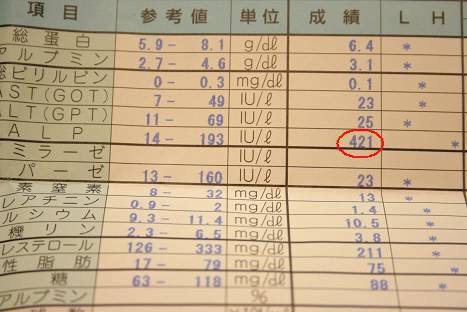 項目 参考値 単位 成績 L H
総蛋白 5.9 - 8.1 g/dl 6.4 *
アルブミン 2.7 - 4.6 g/dl 3.1 *
総ビリルビン 0 - 0.3 mg/dl 0.1 *
AST(GOT) 7 - 49 IU/l 23 *
ALT(GPT) 11 - 69 IU/l 25 *
ALP 14 - 193 IU/l 421 *
ミラーゼ IU/l
パーゼ 13 - 160 IU/l 23 *
素窒素 8 - 32 mg/dl 13 *
レアチニン 0.9 - 2 mg/dl 1.4 *
ルシウム 9.3 - 11.4 mg/dl 10.5 *
機リン 2.3 - 6.5 mg/dl 3.8 *
レステロール 126 - 333 mg/dl 211 *
性脂肪 17 - 79 mg/dl 75 *
糖 63 - 118 mg/dl 88 *
アルブミン %